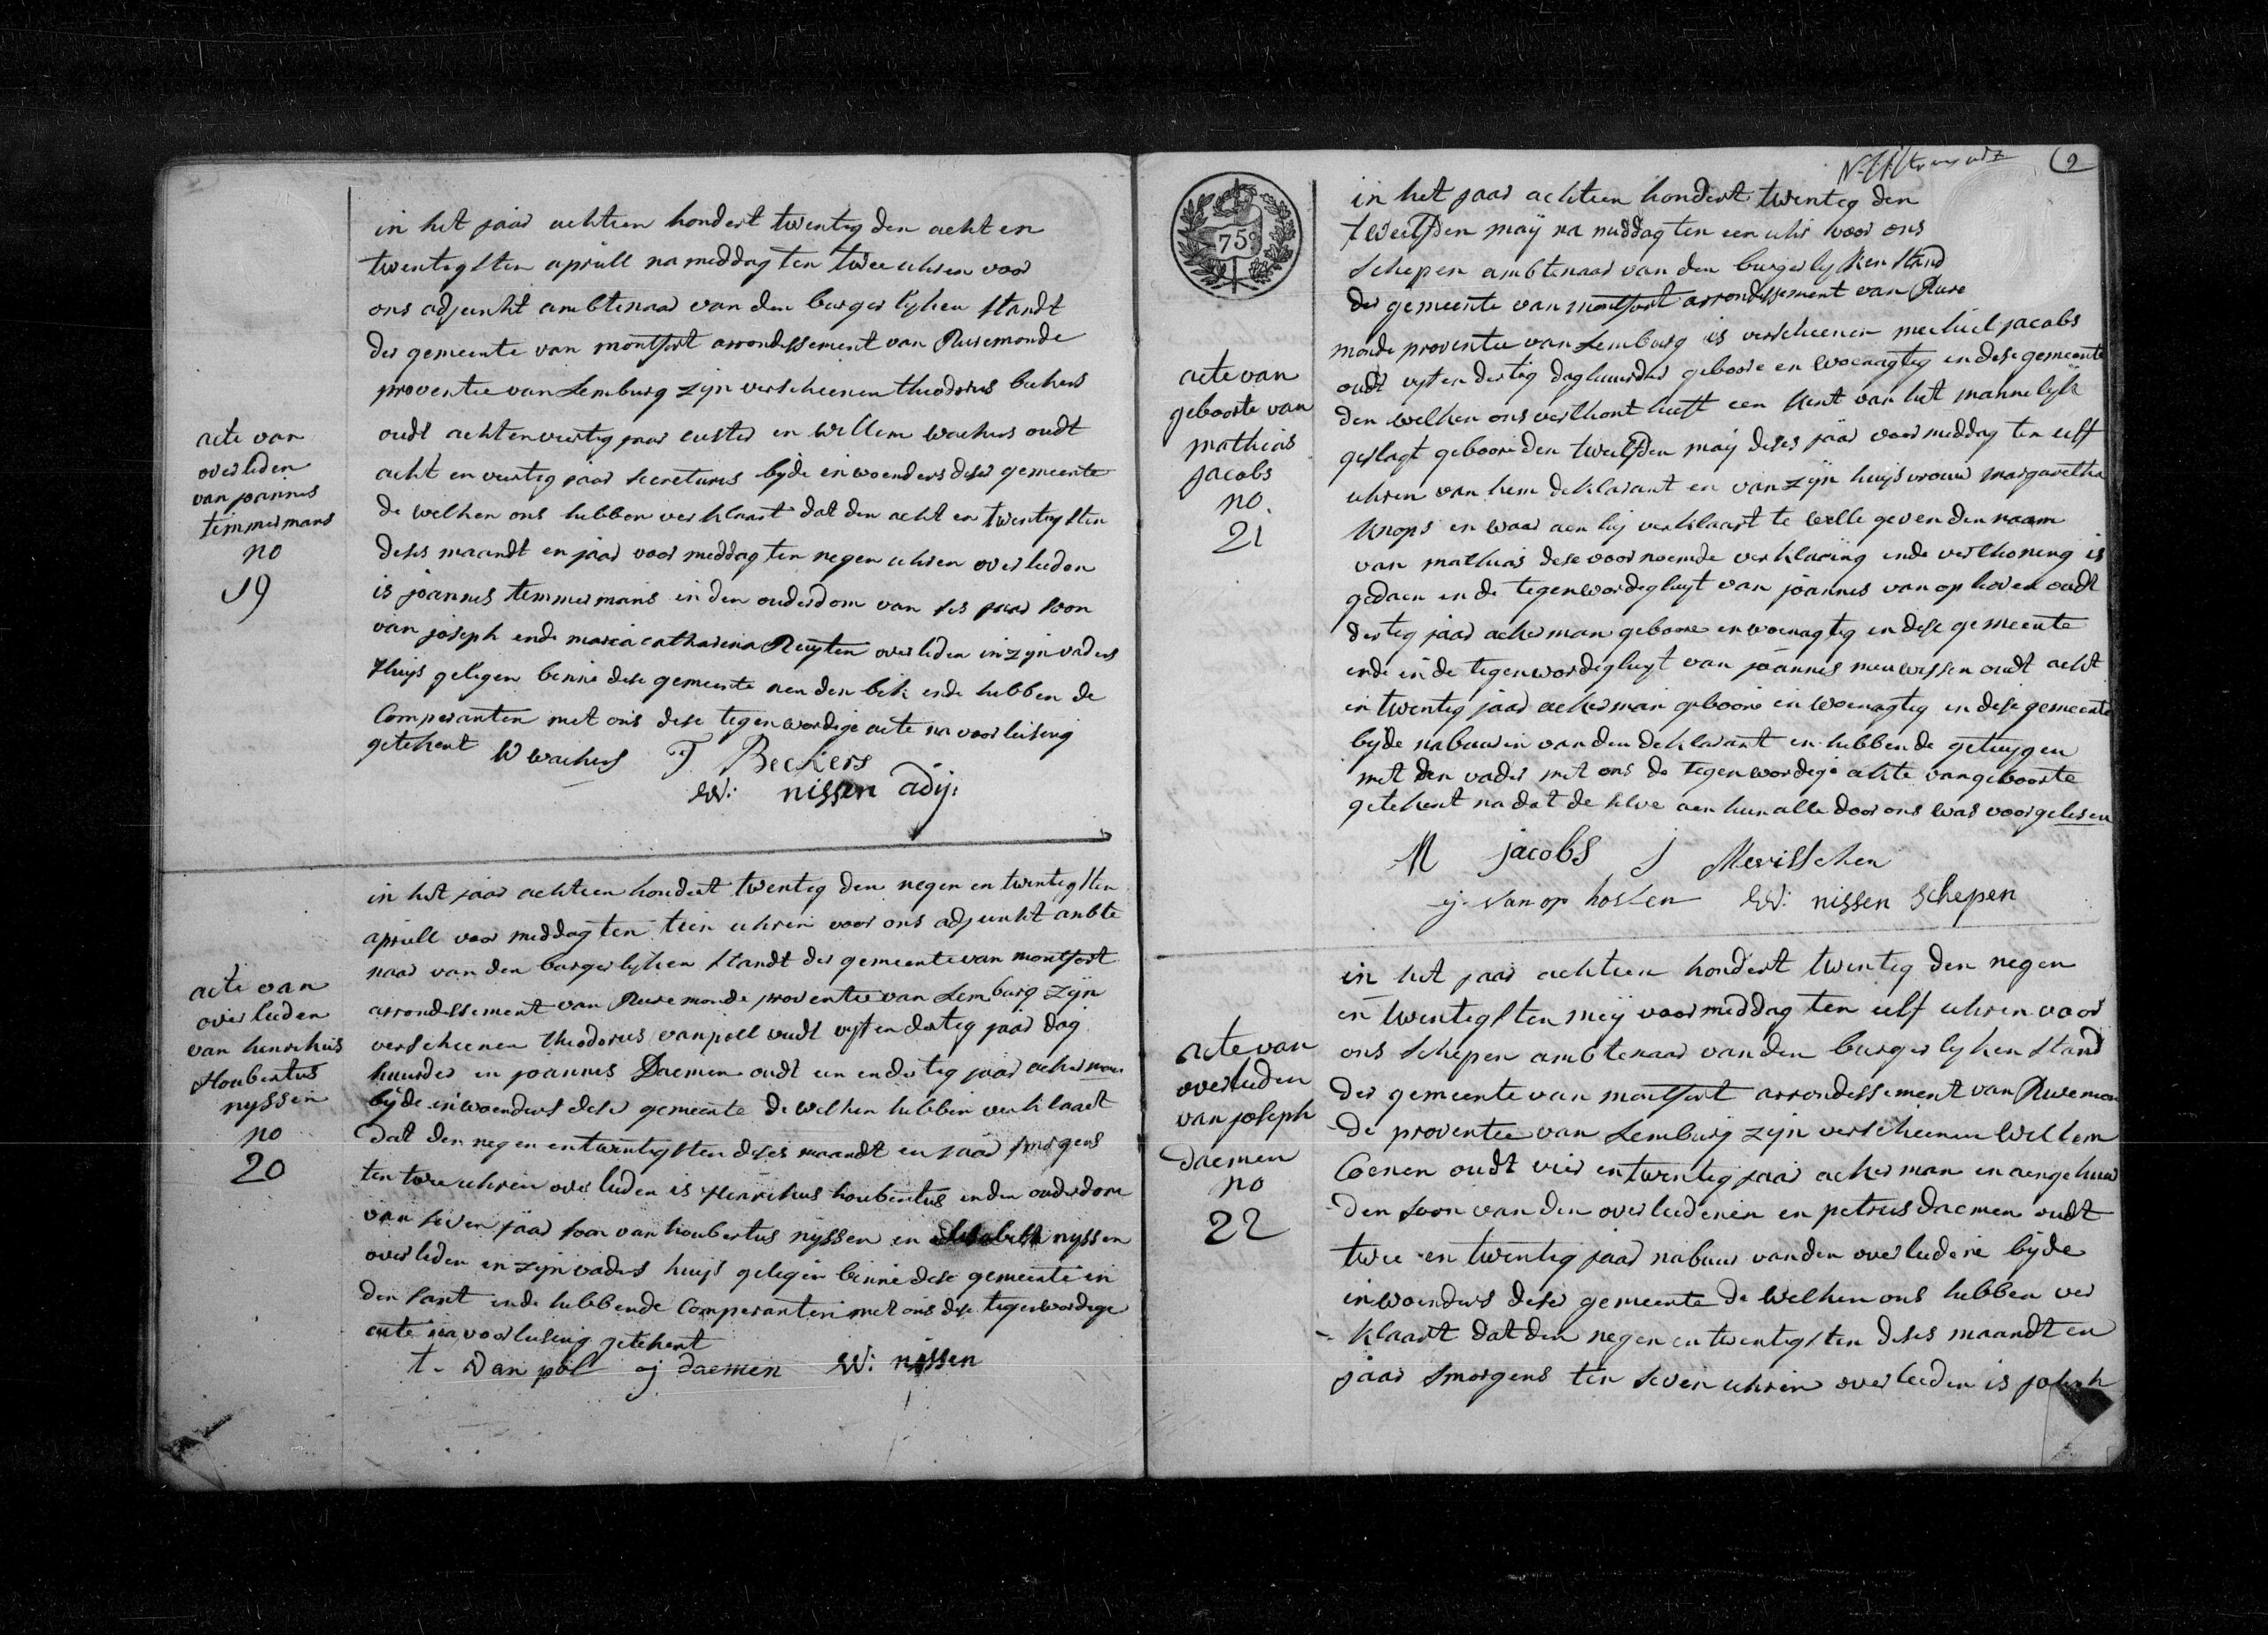 acte van
overleden
van joannes
timmermans
no
19
in het jaar achtien hondert twentig den acht en
twentigsten aprill na middag ten twee uhren voor
ons adjunkt ambtenaar van den burgerlyken standt
der gemeente van montfort arrondissement van Ruremonde
proventie van Lemburg zyn verscheenen theodorus beckers
oudt acht en viertig jaar custer en willem wackers oudt
acht en viertig jaar secretaris byde inwoenders deser gemeente
de welken ons hebben verklaart dat den acht en twentigsten
deses maandt en jaar voor middag ten negen uhren overleeden
is joannes temmermans in den ouderdom van ses jaar soon
van joseph ende maria catharina Ruyten overleden in zyn vaders
Huys gelegen binne dese gemeente aen den bek ende hebben de
Comperanten met ons dese tegenwordige acte na voorleesing
getekent W wackers T Beckers
W: nissen adj:
acte van
overleeden
van henrikus
Houbertus
nyssen
no
20
in het jaar achtien hondert twentig den negen en twentigsten
aprill voor middag ten tien uhren voor ons adjunkt ambte
naar van den burgerlyken standt der gemeente van montfort
arrondissement van Ruremonde proventie van Lemburg zyn
verscheenen theodorus van poll oudt vyf en dertig jaar dag
huurder en joannes Daemen oudt een en dertig jaar ackerman
byde inwoenders deser gemeente de welken hebben verklaart
dat den negen en twentigsten deses maandt en jaar smorgens
ten twee uhren overleeden is Henrikus houbertus in den ouderdom
van seven jaar soon van houbertus nyssen en Elisabeth nyssen
overleden in zyn vaders huys gelegen binne dese gemeente in
den sant ende hebben de Comperanten met ons dese tegenwordige
acte na voorleesing getekent
t. van pol j daemen W: nissen
9
75c
acte van
geboorte van
mathias
jacobs
no.
21
in het jaar achtien hondert twentig den
twelfden may na middag ten een uhr voor ons
schepen ambtenaar van den burgerlyken stand
der gemeente van montfort arrondissement van Rure
monde proventie van Lemburg is verscheenen mechiel jacobs
oudt vyf en dertig daghuurder geboore en woenagtig in dese gemeente
den welken ons verthont heeft een kint van het mannelyk
geslagt gebooren den twelfden may deses jaar voor middag ten elf
uhren van hem deklarant en van zyn huysvrouw margaretha
Knops en waar aen hy verklaart te welle geven den naam
van mathias dese voornoemde verklaring ende verthoning is
gedaen in de tegenwordigheyt van joannes van op hoven oudt
dertig jaar ackerman geboore en woenagtig in dese gemeente
ende in de tegenwordigheyt van joannes meuwissen oudt acht
en twentig jaar ackerman geboore en woenagtig in dese gemeente
byde nabuuren van den deklarant en hebben de getuygen
met den vader met ons de tegenwordige ackte van geboorte
getekent na dat de selve aen hun alle door ons was voorgelesen
M jacobs J Mevisschen
j. van op hoven W: nissen schepen
acte van
overleeden
van joseph
Daemen
no
22
in het jaar achtien hondert twentig den negen
en twentigsten mey voor middag ten elf uhren voor
ons schepen ambtenaar van den burgerlyken stand
der gemeente van montfort arrondissement van Ruremon
de proventie van Lemburg zyn verscheenen Willem
Coenen oudt vier en twentig jaar ackerman en aengehuw
den soon van den overleedenen en petrus daemen oudt
twee en twentig jaar nabuur van den overleedene byde
inwoenders deser gemeente de welken ons hebben ver
klaart dat den negen en twentigsten deses maandt en
jaar smorgens ten seven uhren overleeden is joseph